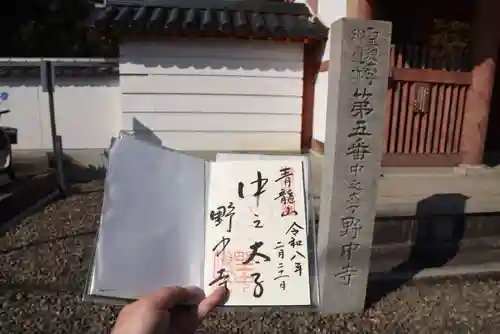 青龍山
令和八年
二月
中之太子
野中寺
第五番中之太子野中寺